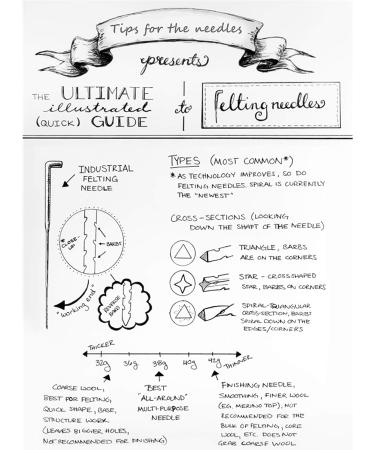 Tips for the needles
presents
THE ULTIMATE
illustrated
(QUICK) GUIDE
to
felting needles
INDUSTRIAL
FELTING
NEEDLE
*CLOSE-UP
BARBS
"working end"
REVERSE
BARBS
TYPES (MOST COMMON*)
*AS TECHNOLOGY IMPROVES, SO DO
FELTING NEEDLES. SPIRAL IS CURRENTLY
THE "NEWEST"
CROSS-SECTIONS (LOOKING
DOWN THE SHAFT OF THE NEEDLE)
TRIANGLE, BARBS
ARE ON THE CORNERS
STAR - CROSS SHAPED
STAR, BARBS ON CORNERS
SPIRAL-TRIANGULAR
CROSS-SECTION, BARBS
SPIRAL DOWN ON THE
EDGES/CORNERS
THICKER
32g 36g 38g 40g 42g
THINNER
COARSE WOOL,
BEST FOR FELTING,
QUICK SHAPE, BASE,
STRUCTURE WORK
(LEAVES BIGGER HOLES,
NOT RECOMMENDED FOR FINISHING)
BEST
"ALL-AROUND"
MULTI-PURPOSE
NEEDLE
FINISHING NEEDLE,
SMOOTHING, FINER WOOL
(EG. MERINO TOP), NOT
RECOMMENDED FOR THE
BULK OF FELTING, CORE
WOOL, ETC. DOES NOT
GRAB COARSE WOOL